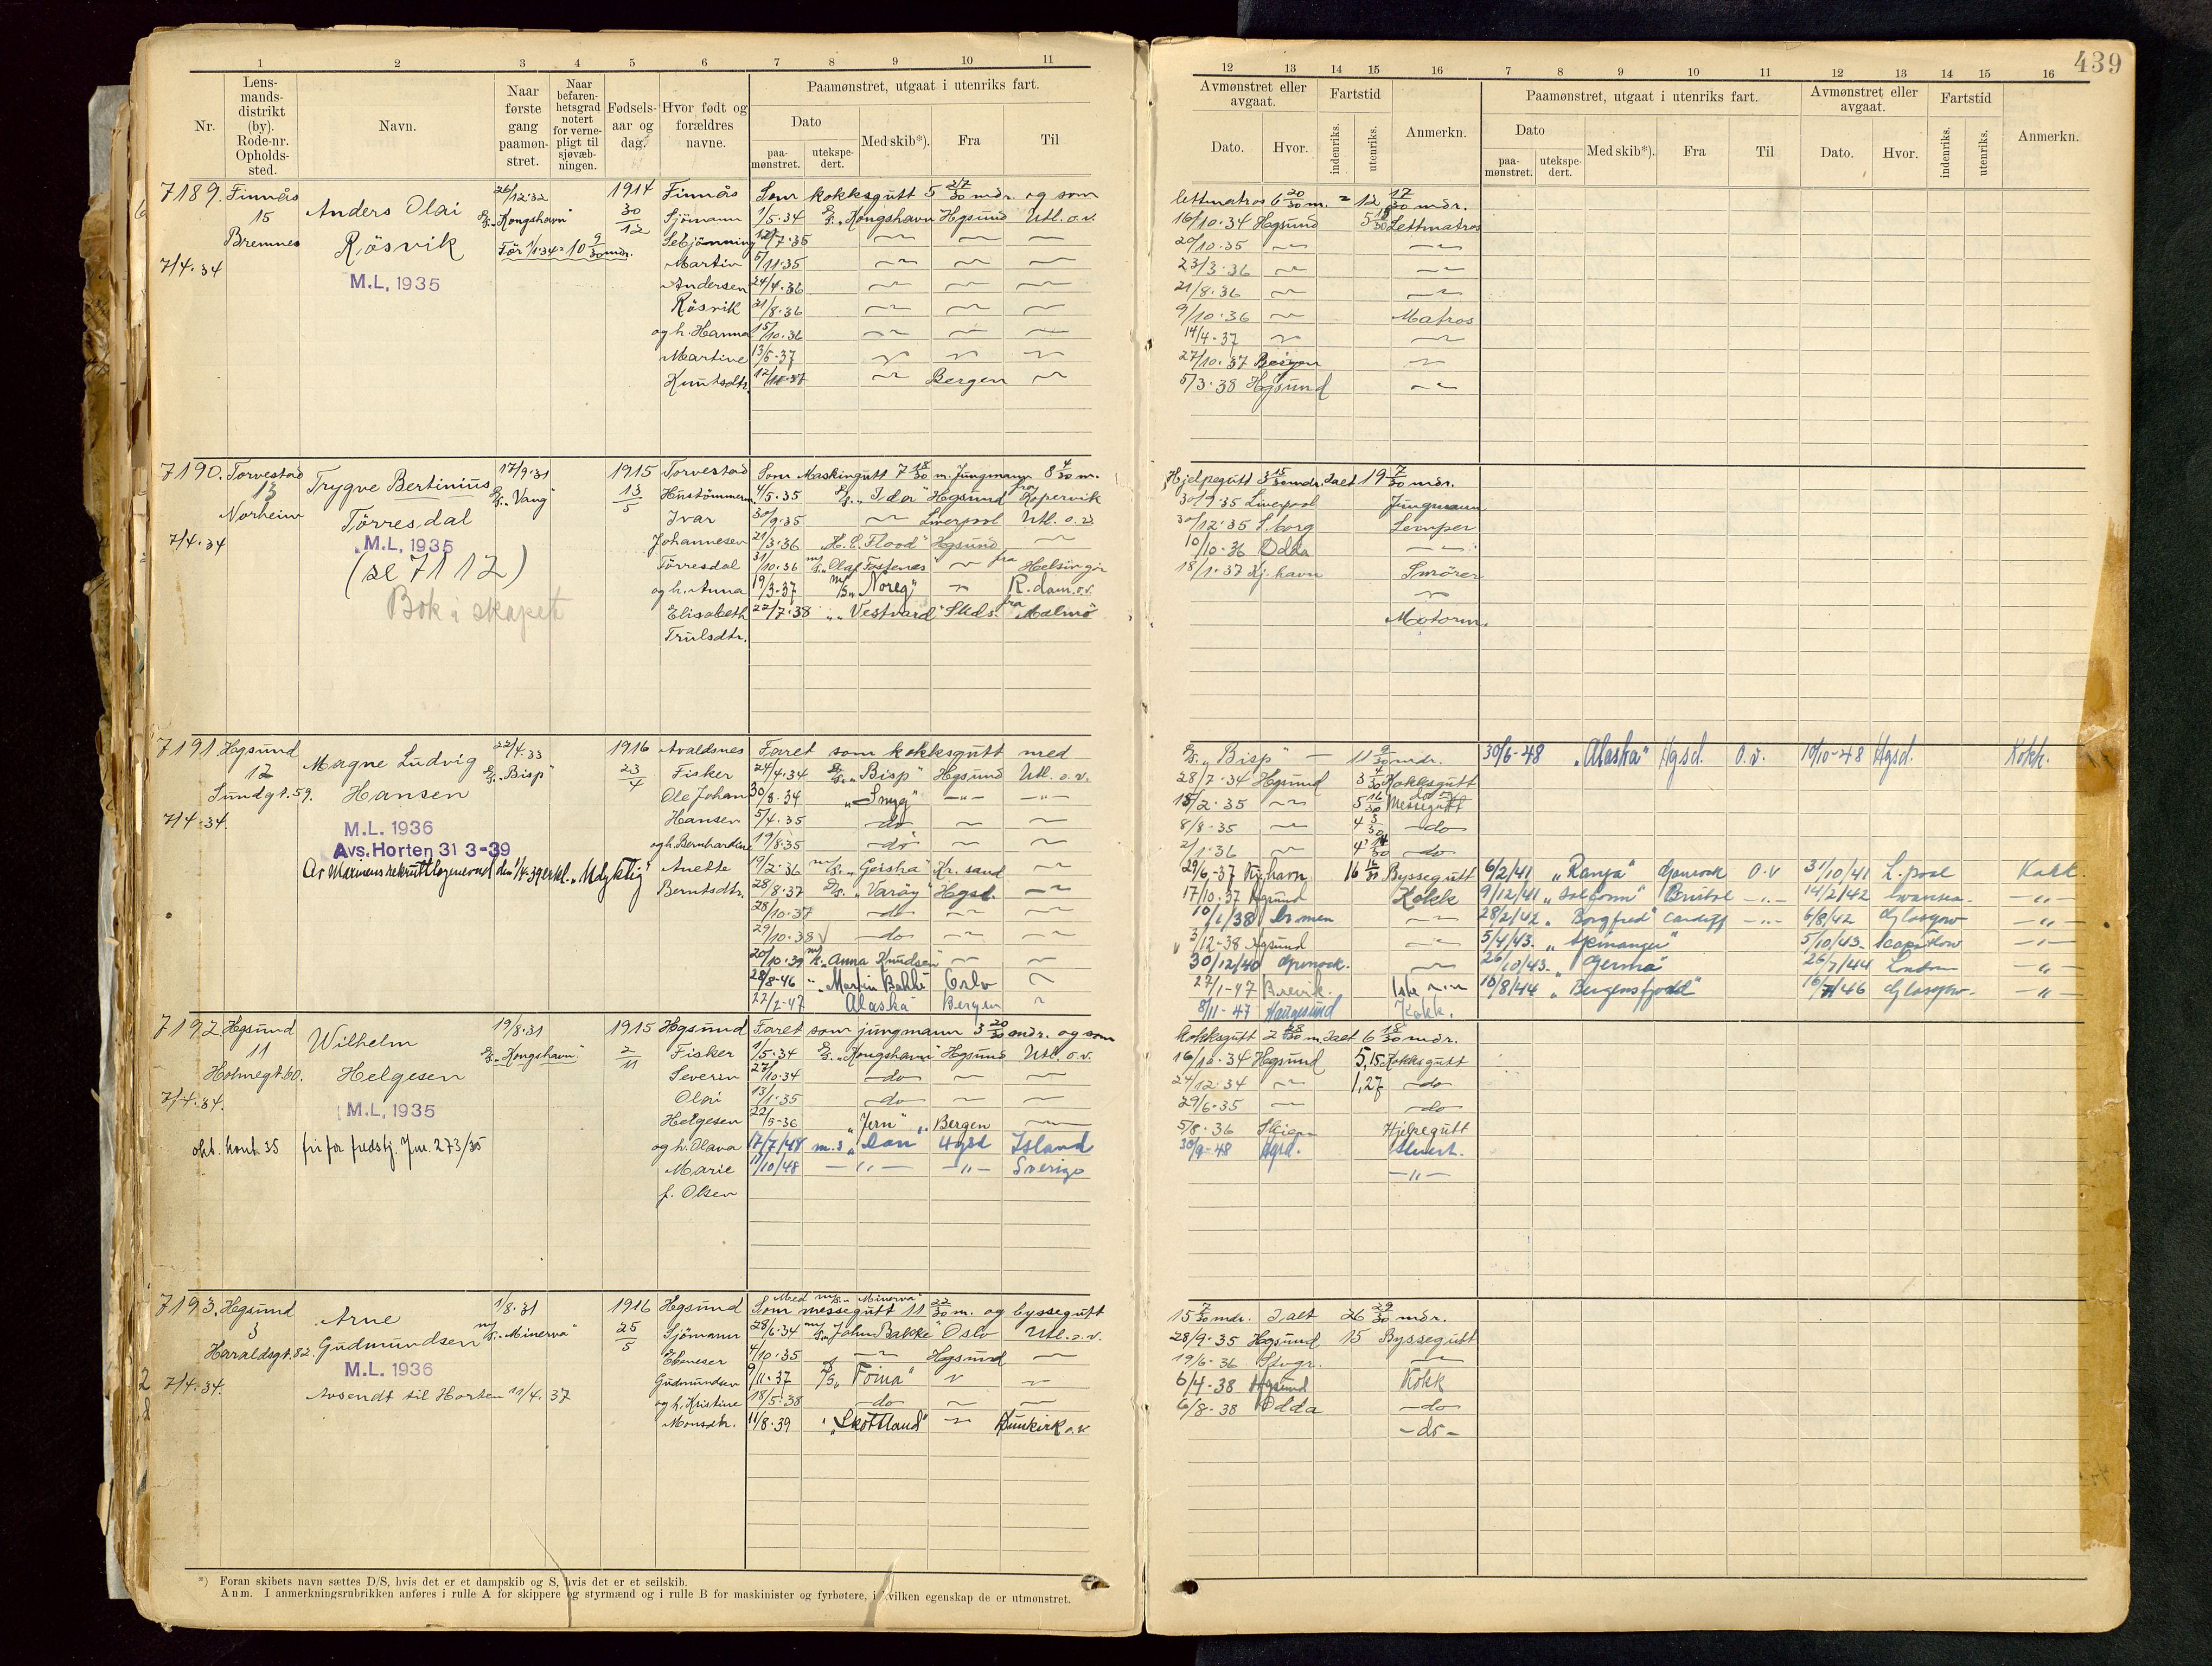 439
1 2 3 4 5 6 7 8 9 10 11
Nr.
Lens-
mands-
distrikt
(by).
Rode-nr.
Opholds-
sted.
Navn.
Naar
første
gang
paamøn-
stret.
Naar
befaren-
hetsgrad
notert
for verne-
pligt til
sjøvæb-
ningen.
Fødsels-
aar og
dag.
Hvor født og
forældres
navne.
Paamønstret, utgaat i utenriks fart.
Dato
paa-
mønstret.
utekspe-
dert.
Med skib*).
Fra
Til
12 13 14 15 16 7 8 9 10 11 12 13 14 15 16
Avmønstret eller
avgaat.
Dato. Hvor.
Fartstid
indenriks. utenriks.
Anmerkn.
Paamønstret, utgaat i utenriks fart.
Dato
paa-
mønstret.
utekspe-
dert.
Med skib*).
Fra
Til
Avmønstret eller
avgaat.
Dato. Hvor.
Fartstid
indenriks. utenriks.
Anmerkn.
7189. Finnås
15
Bremnes
7/4.34
Anders Olai
Røsvik
M.L. 1935
26/12.32
D/S. „Kongshavn"
Før 1/1.34 = 10 9/30 mdr.
1914
30/12
Finnås
Sjømann
Sebjønning
Martin
Andersen
Røsvik
og h. Hanna
Martine
Knutsdtr.
Som kokksgutt 5 27/30 mdr. og som
1/5.34 D/S. „Kongshavn Hgsund Utl. o.v.
12/7.35 — — —
5/11.35 — — —
24/4.36 — — —
21/8.36 — — —
15/10.36 — — —
13/6.37 — — —
12/11.37 — Bergen —
lettmatros 6 20/30 m. = 12 17/30 mdr.
16/10.34 Hgsund 5 15/30 Lettmatros
20/10.35 — —
23/3.36 — —
21/8.36 — —
9/10.36 — Matros
14/4.37 — —
27/10.37 Bergen —
5/3.38 Hgsund —
7190. Torvestad
13
Norheim
7/4.34
Trygve Bertinius
Tørresdal
M.L. 1935
(se 7112)
Bok i skapet
17/9.31
D/S. „Vang"
1915
13/5
Torvestad
Hustømmerm.
Ivar
Johannesen
Tørresdal
og h. Anna
Elisabeth
Trulsdtr.
Som Maskingutt 7 18/30 m. Jungmann 8 4/30 m.
4/5.35 D/S. „Ida" Hgsund fra Kopervik
30/9.35 — Liverpool Utl. o.v.
21/3.36 „H. C. Flood" Hgsund —
31/10.36 m/S. „Olaf Fostenes" — fra Helsingør
19/3-37 m/S. „Noreg" — R.dam. o.v.
22/7.38 „ „ Vestvard" Skds. fra Malmø
Hjelpegutt 3 15/30 mdr. Ialt 19 7/30 mdr.
30/9.35 Liverpool Jungmann
30/12.35 S.borg Lemper
10/10-36 Odda —
18/1.37 Kj.havn Smører
—
Motorm.
7191 Hgsund
12
Sundgt. 59.
7/4.34.
Magne Ludvig
Hansen
M.L. 1936
Avs. Horten 31 3-39
Av Marinens rekruttlegenevnd den 1/4.39 erkl. „Udyktig"
22/4.33
D/S. „Bisp"
1916
23/4
Avaldsnes
Fisker
Ole Johan
Hansen
og h. Bernhardine
Anette
Berntsdtr.
Faret som kokksgutt med
24/4.34 D/S. „Bisp" Hgsund Utl. o.v.
30/8.34 „Snyg" —"— —"—
5/4.35 do — —
19/8.35 do — —
19/2.36 m/S. „Geisha" Kr.sand —
28/8.37 D/S. „Varøy" Hgsd. —
28/10.37 do — —
29/10.38 do — —
20/10.39 m/S. „Anna Knudsen" — —
28/8-46 " „Martin Bakke Oslo —
22/2-47 Alaska Bergen —
D/S. „Bisp" — 11 9/30 mdr.
28/7.34 Hgsund 3 4/30 Kokksgutt
15/2.35 — 5 16/30 Messegutt
8/8-35 — 4 3/30 do
2/1.36 — 4 14/30 do
29/6-37 Kj.havn 16 16/30 Byssegutt
17/10.37 Hgsund Kokk
10/1/38 —
3/12-38 Hgsund —
30/12/40 Greenock. —
27/1-47 Brevik.
8/11-47 Haugesund Kokk.
30/6-48 „Alaska" Hgsd. o.v. 19/10-48 Hgsd. Kokk.
6/2/41 „Ranja" Greenock o.v 31/10/41 L.pool Kokk.
9/12/41 „Solfonn" Bristol —„— 14/2/42 Swansea —„—
28/2/42 „Borgfred" Cardiff —„— 6/8/42 Glasgow —„—
5/4/43. 5/10/43. Scapa Flow —„—
26/10/43. „Germa" 26/7/44 London —„—
18/8/44 „Bergensfjord" 16/7/46 Glasgow —„—
7192. Hgsund
11
Holmegt. 60.
7/4.34.
Wilhelm
Helgesen
M.L. 1935
okt. kont. 35 fri for fredstj. Jnr. 273/35
19/8.31
D/S. „Kongshavn"
1915
2/11
Hgsund
Fisker
Severin
Olai
Helgesen
og h. Olava
Marie
f. Olsen
Faret som jungmann 3 20/30 mdr. og som
1/5.34 D/S. „Kongshavn" Hgsund Utl. o.v.
27/10.34 do — —
13/1.35 do — —
22/5-36 „Jern" „ Bergen —
17/7/48 m.s „Don Hgsd Island
11/10/48 —„— —„— Sverige
kokksgutt 2 28/30 m. Ialt 6 18/30 mdr.
16/10.34 Hgsund 5,15 Kokksgutt
24/12.34 — 1,27 do
29/6-35 — do
5/8.36 Skien Hjelpegutt
30/9-48 Hgsd. Stuert.
—„—
7193. Hgsund
3
Haraldsgt. 82.
7/4.34.
Arne
Gudmundsen
M.L. 1936
Avsendt til Horten 11/4.37
1/8.31
m/S. „Minerva"
1916
25/5
Hgsund
Sjømann
Ebeneser
Gudmundsen
og h. Kristine
Monsdtr.
Med m/S. „Minerva"
Som messegutt 11 22/30 m. og byssegutt
28/6.34 m/S. „John Bakke" Oslo Utl. o.v.
4/10.35 — Hgsund —
9/11.37 D/S. „Foina" — —
18/5.38 do — —
11/8.39 „Skottland" — Dunkirk o.v
15 7/30 mdr. Ialt 26 29/30 mdr.
28/9-35 Hgsund 15 Byssegutt
19/6-36 Stvgr. —
6/4-38 Hgsund Kokk
6/8-38 Odda do
— do —
*) Foran skibets navn sættes D/S, hvis det er et dampskib og S, hvis det er et seilskib.
Anm. I anmerkningsrubrikken anføres i rulle A for skippere og styrmænd og i rulle B for maskinister og fyrbøtere, i hvilken egenskap de er utmønstret.